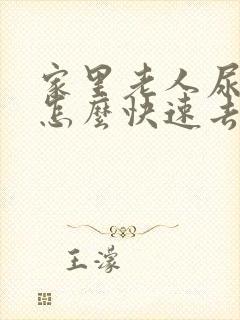 家里老人尿
怎麼快速去
王濛